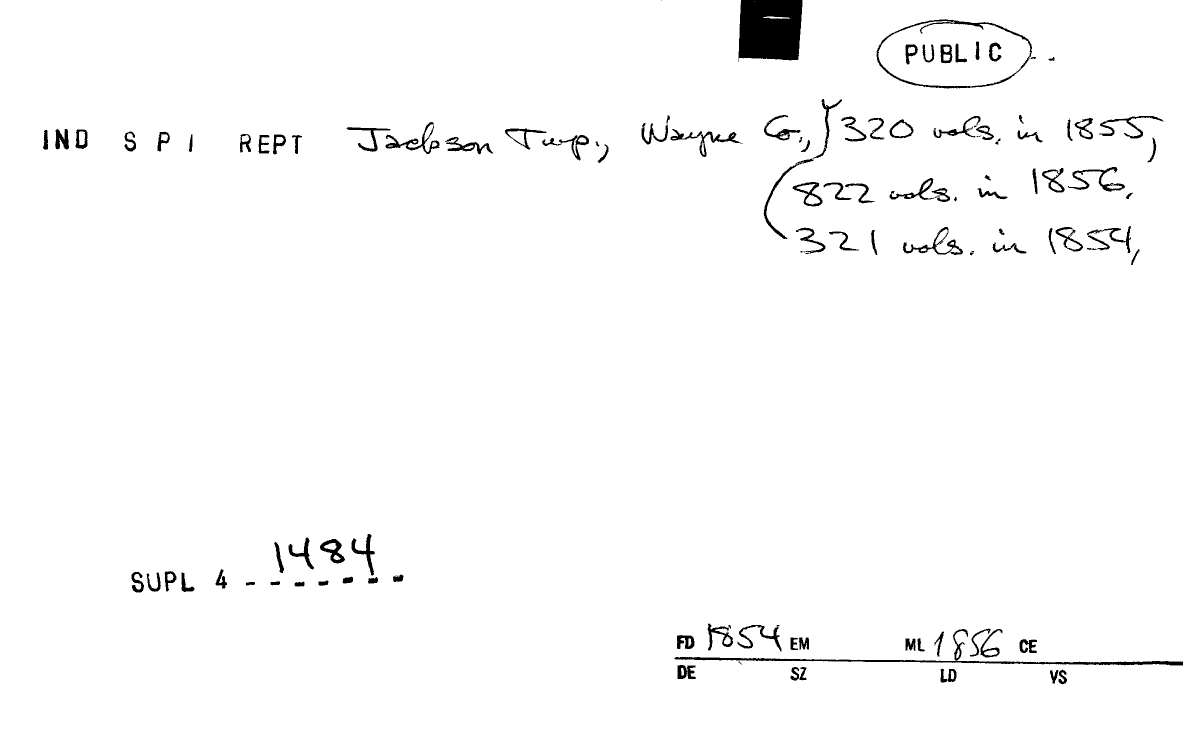 PUBLIC
IND S P I REPT Jackson Twp., Wayne Co., } 320 vols. in 1855,
822 vols. in 1856.
321 vols. in 1854,
1484
SUPL 4 - - - - - - -
FD 1854 EM ML 1856 CE
DE SZ LD VS